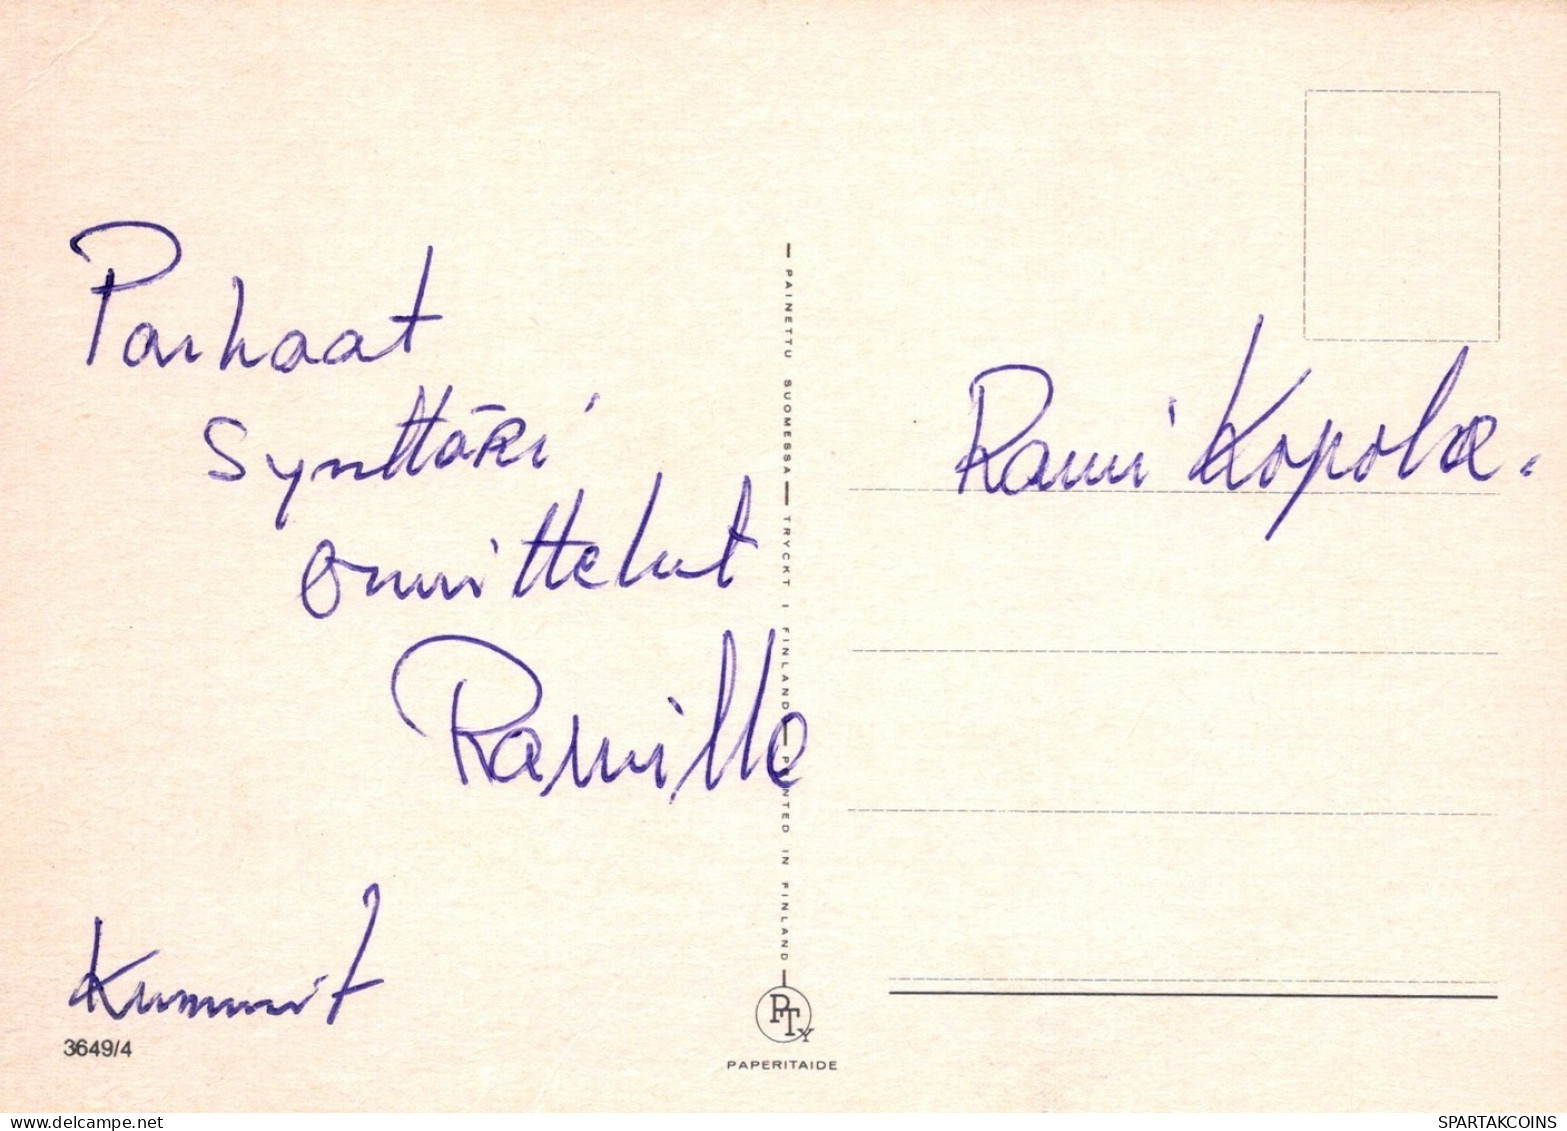 Parhaat
synttäri
onnittelut
Ramille
Kummit
3649/4
PAINETTU SUOMESSA — TRYCKT I FINLAND — PRINTED IN FINLAND
PTY
PAPERITAIDE
Rami Kopola.
delcampe.net
SPARTAKCOINS